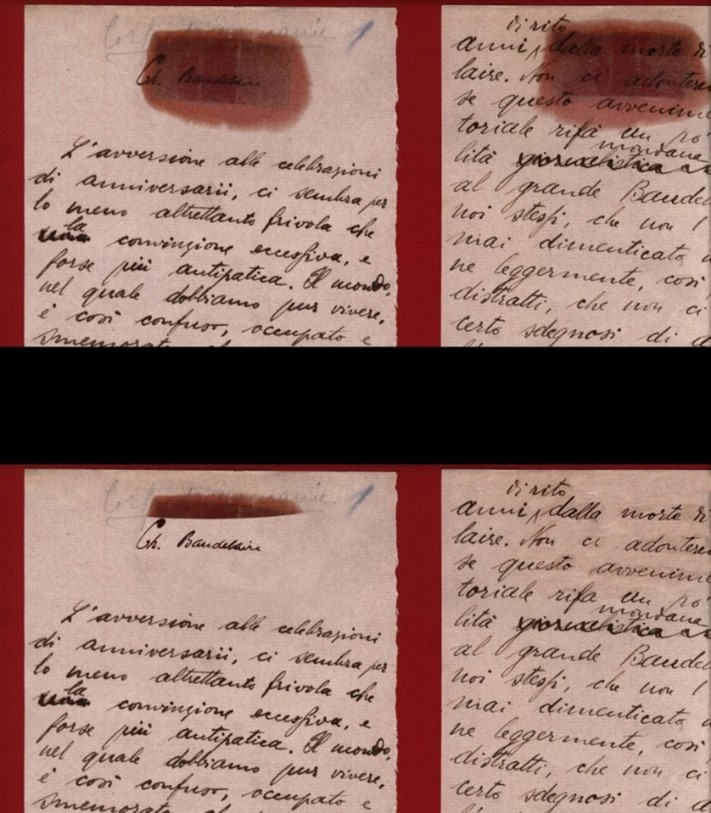 Ch. Baudelaire
1
L'avversione alle celebrazioni
di anniversarii, ci sembra per
lo meno altrettanto frivola che
la convinzione eccessiva, e
forse più antipatica. Il mondo,
nel quale dobbiamo pur vivere,
è così confuso, occupato e
smemorato
di rito
anni, dalla morte di
laire. Non ci adontere
se questo avvenime
toriale rifà un po'
mondana
lità giornalistica
al grande Baudel
noi stessi, che non l
mai dimenticato
ne leggermente, così
distratti, che non ci
certo sdegnosi di d
Ch. Baudelaire
1
L'avversione alle celebrazioni
di anniversarii, ci sembra per
lo meno altrettanto frivola che
la convinzione eccessiva, e
forse più antipatica. Il mondo,
nel quale dobbiamo pur vivere,
è così confuso, occupato e
smemorato
di rito
anni, dalla morte di
laire. Non ci adontere
se questo avvenime
toriale rifà un po'
mondana
lità giornalistica
al grande Baudel
noi stessi, che non l
mai dimenticato
ne leggermente, così
distratti, che non ci
certo sdegnosi di d